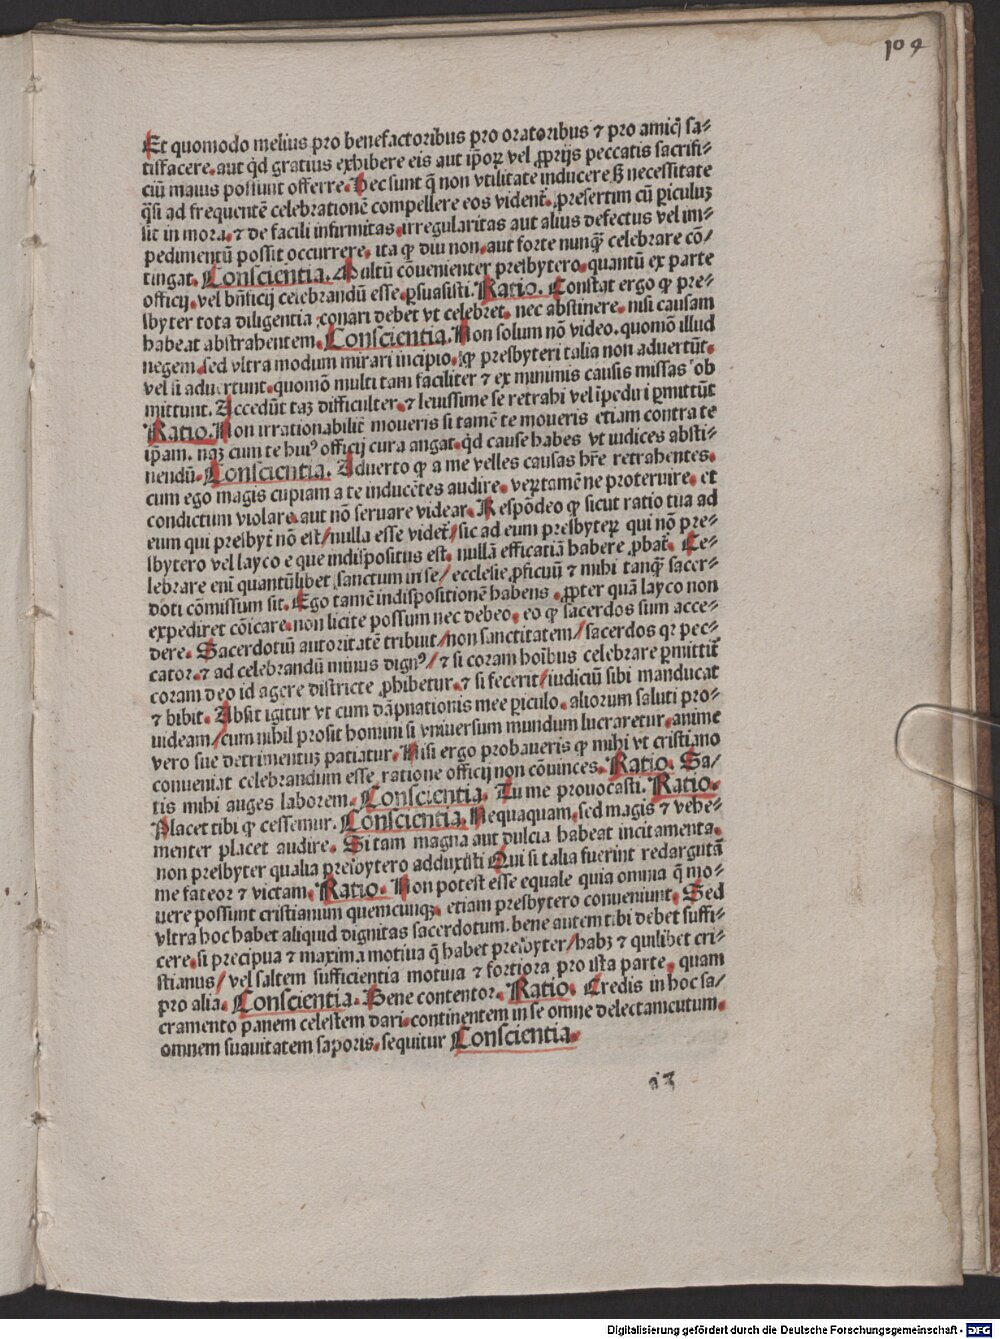 109
Et quomodo melius pro benefactoribus pro oratoribus ⁊ pro amicꝭ sa⸗
tisfacere. aut qͥd gratius exhibere eis aut ip̄oꝝ vel ꝓprijs peccatis sacrifi⸗
ciū maius possunt offerre. Hec sunt q̄ non vtilitate inducere ſꝫ necessitate
q̄si ad frequentē celebrationē compellere eos vident̄. presertim cū ꝑiculuꝫ
sit in mora. ⁊ de facili infirmitas. irregularitas aut alius defectus vel im⸗
pedimentū possit occurrere. ita ꝙ diu non. aut forte nunqꝫ̄ celebrare cō/
tingat. Conscientia. Multū cōuenienter presbytero. quantū ex parte
officij. vel bn̄ficij celebrandū esse. ꝑsuasisti. Ratio. Constat ergo ꝙ pre⸗
sbyter tota diligentia conari debet vt celebret. nec abstinere. nisi causam
habeat abstrahentem. Conscientia. Non solum nō video. quomō illud
negem. sed vltra modum mirari incipio. ꝙ presbyteri talia non aduertūt.
vel si aduertunt. quomō multi tam faciliter ⁊ ex minimis causis missas ob
mittunt. Accedūt taꝫ difficulter. ⁊ leuissime se retrahi vel īpediri ꝑmittūt
Ratio. Non irrationabilit̄ moueris si tamē te moueris etiam contra te
ip̄am. naꝫ cum te huiꝰ officij cura angat. qͥd cause habes vt iudices absti⸗
nendū. Conscientia. Aduerto ꝙ a me velles causas hr̄e retrahentes.
cum ego magis cupiam a te inducētes audire. veꝝtamē ne proteruire. et
condictum violare. aut nō seruare videar. Respōdeo ꝙ sicut ratio tua ad
eum qui presbyt̄ nō est/ nulla esse videt̄/ sic ad eum presbyteꝝ qui nō pre⸗
sbytero vel layco e que indispositus est. nullā efficatiā habere ꝓbat̄. Ce⸗
lebrare enī quantūlibet sanctum in se/ ecclesie ꝓficuū ⁊ mihi tanqꝫ̄ sacer⸗
doti cōmissum sit. Ego tamē indispositionē habens. ꝓpter quā layco non
expediret cōicare. non licite possum nec debeo. eo ꝙ sacerdos sum acce⸗
dere. Sacerdotiū autoritatē tribuit/ non sanctitatem/ sacerdos qꝛ pec⸗
cator. ⁊ ad celebrandū minus dignꝰ/ ⁊ si coram hoībus celebrare ꝑmittit̄
coram deo id agere districte ꝓhibetur. ⁊ si fecerit/ iudiciū sibi manducat
⁊ bibit. Absit igitur vt cum dāpnationis mee ꝑiculo. aliorum saluti pro⸗
uideam/ cum nihil prosit homini si vniuersum mundum lucraretur. anime
vero sue detrimentuꝫ patiatur. Nisi ergo probaueris ꝙ mihi vt cristiano
conueniat celebrandum esse. ratione officij non cōuinces. Ratio. Sa/
tis mihi auges laborem. Conscientia. Tu me prouocasti. Ratio.
Placet tibi ꝙ cessemur. Conscientia. Nequaquam. sed magis ⁊ vehe⸗
menter placet audire. Si tam magna aut dulcia habeat incitamenta.
non presbyter qualia presbytero adduxisti Qui si talia fuerint redargutā
me fateor ⁊ victam. Ratio. Non potest esse equale quia omnia q̄ mo⸗
uere possunt cristianum quemcunqꝫ. etiam presbytero conueniunt. Sed
vltra hoc habet aliquid dignitas sacerdotum. bene autem tibi debet suffi⸗
cere. si precipua ⁊ maxima motiua q̄ habet presbyter/ habꝫ ⁊ quilibet cri⸗
stianus/ vel saltem sufficientia motiua ⁊ fortiora pro ista parte. quam
pro alia. Conscientia. Bene contentor. Ratio. Credis in hoc sa/
cramento panem celestem dari. continentem in se omne delectamentum.
omnem suauitatem saporis. sequitur Conscientia.
Digitalisierung gefördert durch die Deutsche Forschungsgemeinschaft - DFG